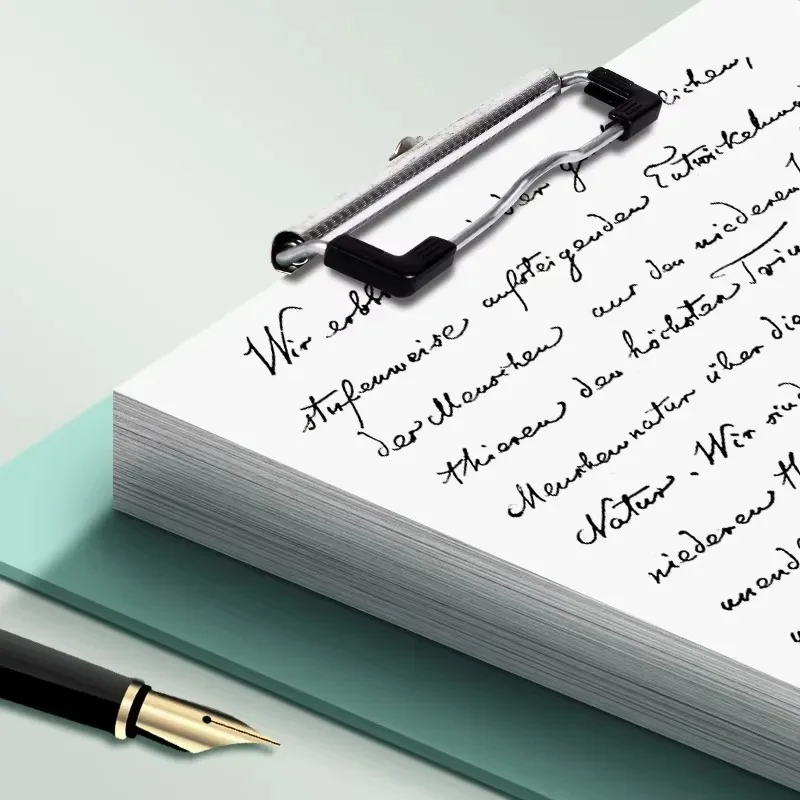 der
Wir
stufenweise aufsteigenden Entwickelung
der Menschen aus den niederen
thieren den höchsten
Menschennatur über die
Natur. Wir sind
niederen